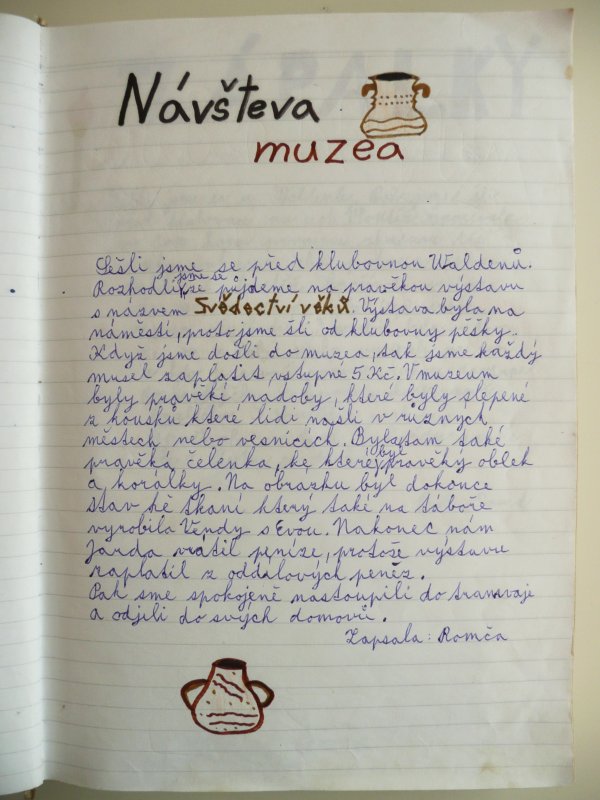 Návšteva
muzea
Sešli jsme se před klubovnou Waldenů.
Rozhodli jsme se že půjdeme na pravěkou výstavu
s názvem Svědectví věků. Výstava byla na
náměstí, proto jsme šli od klubovny pěšky.
Když jsme došli do muzea, tak jsme každý
musel zaplatit vstupné 5 Kč. V muzeum
byly pravěké nadoby, které byly slepené
z kousků které lidi našli v různých
městech nebo vesnicích. Byla tam také
pravěká čelenka, ke které byl pravěký oblek
a korálky. Na obrazku byl dokonce
stav ke tkaní který také na táboře
vyrobila Vendy s Evou. Nakonec nám
Jarda vratil peníze, protože výstavu
zaplatil z oddílových peněz.
Pak sme spokojeně nastoupili do tramvaje
a odjeli do svých domovů.
Zapsala: Romča